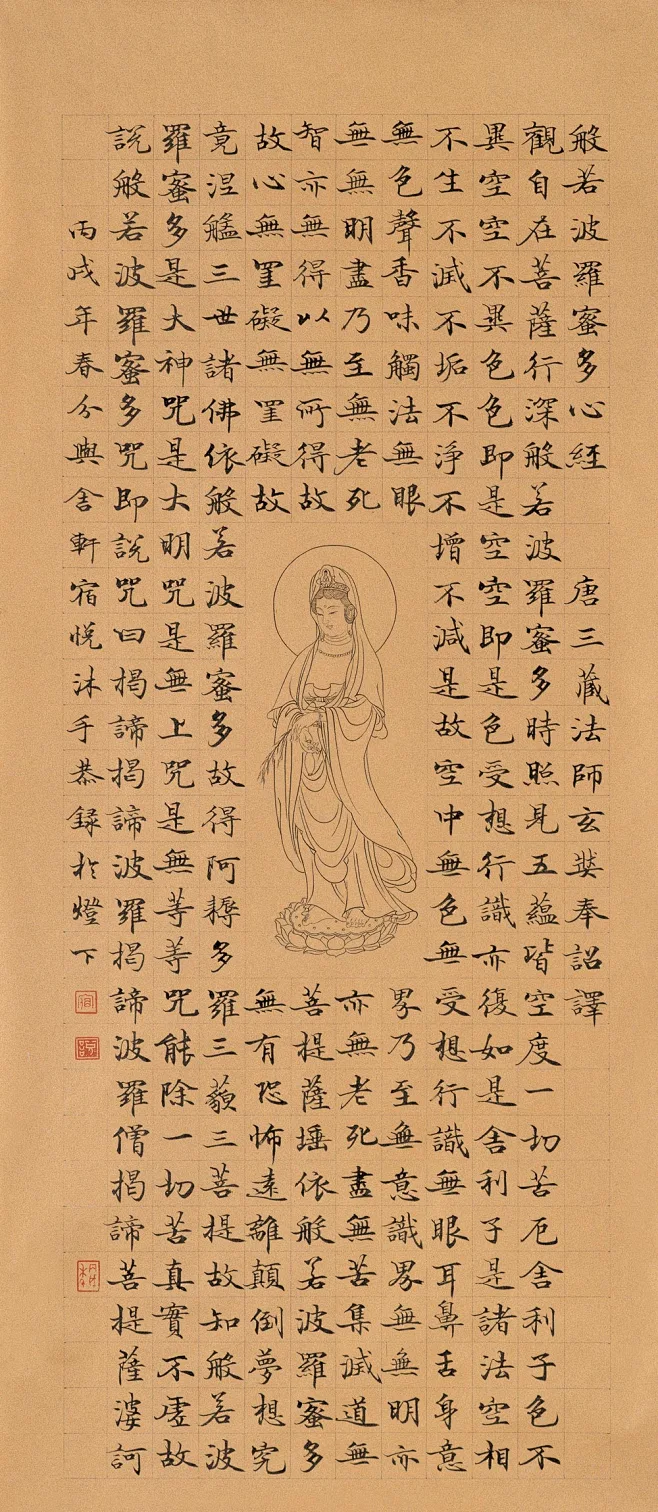 般若波羅蜜多心經 唐三藏法師玄奘奉詔譯
觀自在菩薩行深般若波羅蜜多時照見五蘊皆空度一切苦厄舍利子色不
異空空不異色色即是空空即是色受想行識亦復如是舍利子是諸法空相
不生不滅不垢不淨不增不減是故空中無色無受想行識無眼耳鼻舌身意
無色聲香味觸法無眼 界乃至無意識界無無明亦
無無明盡乃至無老死 亦無老死盡無苦集滅道無
智亦無得以無所得故 菩提薩埵依般若波羅蜜多
故心無罣礙無罣礙故 無有恐怖遠離顛倒夢想究
竟涅槃三世諸佛依般若波羅蜜多故得阿耨多羅三藐三菩提故知般若波
羅蜜多是大神咒是大明咒是無上咒是無等等咒能除一切苦真實不虛故
說般若波羅蜜多咒即說咒曰揭諦揭諦波羅揭諦波羅僧揭諦菩提薩婆訶
丙戌年春分與舍軒宿悅沐手恭錄於燈下